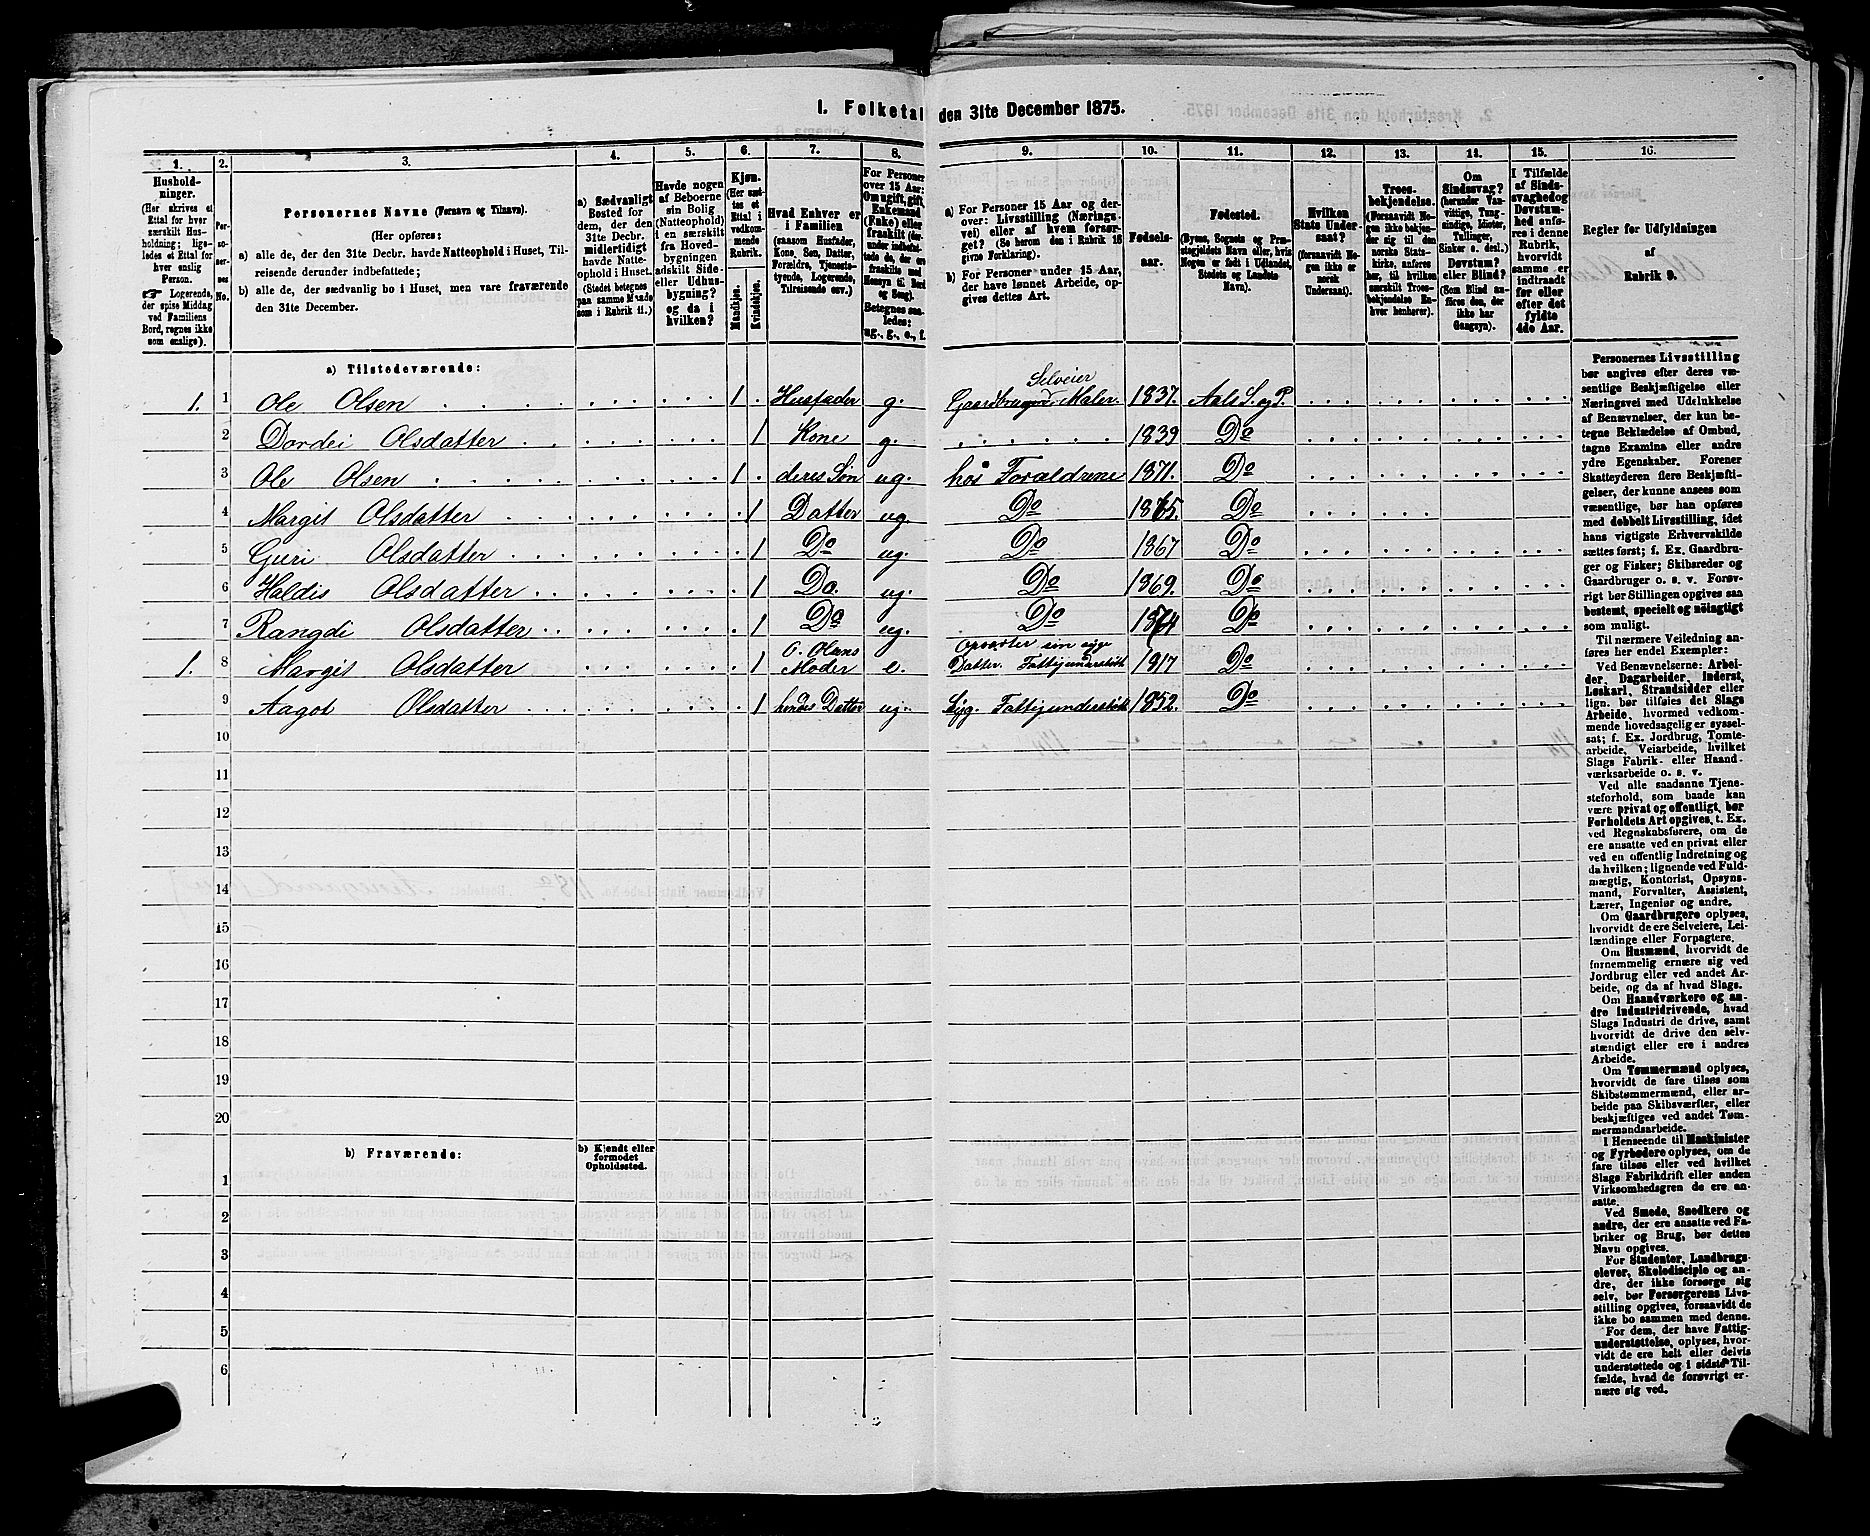 I. Folketal den 31te December 1875.
1. 2. 3. 4. 5. 6. 7. 8. 9. 10. 11. 12. 13. 14. 15. 16.
Hushold-
ninger.
(Her skrives et
Ettal for hver
særskilt Hus-
holdning; lige-
ledes et Ettal for
hver enslig
Person.
☞ Logerende,
der spise Middag
ved Familiens
Bord, regnes ikke
som enslige).
Per-
so-
ner-
nes
No.
Personernes Navne (Fornavn og Tilnavn).
(Her opføres:
a) alle de, der den 31te Decbr. havde Natteophold i Huset, Til-
reisende derunder indbefattede;
b) alle de, der sædvanlig bo i Huset, men vare fraværende
den 31te December.
a) Sædvanligt
Bosted for
dem, der den
31te Decbr.
midlertidigt
havde Natte-
ophold i Huset.
(Stedet betegnes
paa samme Maade
som i Rubrik 11.)
Havde nogen
af Beboerne
sin Bolig
(Natteophold)
i en særskilt
fra Hoved-
bygningen
adskilt Side-
eller Udhus-
bygning?
og da i
hvilken?
Kjøn.
(Her sæt-
tes et
Ettal i
vedkom-
mende
Rubrik.
Mandkjøn.
Kvindekjøn.
Hvad Enhver er
i Familien
(saasom Husfader,
Kone, Søn, Datter,
Forældre, Tjeneste-
tyende, Logerende,
Tilreisende osv.)
For Personer
over 15 Aar:
Om ugift, gift,
Enkemand
(Enke) eller
fraskilt (der-
under indbefat-
tede de, der ere
fraskilte med
Hensyn til Bord
og Seng).
Betegnes saa-
ledes:
ug., g., e., f.
a) For Personer 15 Aar og der-
over: Livsstilling (Nærings-
vei) eller af hvem forsør-
get? (Se herom den i Rubrik 16
givne Forklaring).
b) For Personer under 15 Aar,
der have lønnet Arbeide, op-
gives dettes Art.
Fødsels-
aar.
Fødested.
(Byens, Sognets og Præ-
stegjeldets Navn eller, hvis
Nogen er født i Udlandet,
Stedets og Landets
Navn).
Hvilken
Stats Under-
saat?
(forsaavidt No-
gen ikke er
norsk
Undersaat).
Troes-
bekjendelse.
(Forsaavidt No-
gen ikke bekjen-
der sig til den
norske Stats-
kirke, anføres
her, til hvilken
særskilt Troes-
bekjendelse En-
hver henhører).
Om
Sindssvag?
(herunder Van-
vittige, Tung-
sindige, Idioter,
Tullinger,
Sinker o. desl.)
Døvstum?
eller Blind?
(Som Blind an-
føres den, der
ikke har
Gangsyn).
I Tilfælde
af Sinds-
svaghed og
Døvstum-
hed anfø-
res i denne
Rubrik,
hvorvidt
samme er
indtraadt
før eller
efter det
fyldte
4de Aar.
Regler for Udfyldningen
af
Rubrik 9.
a) Tilstedeværende:
1. 1 Ole Olsen 1 Husfader g. Gaardbruger Selveier Maler. 1837. Aals S. og P.
2 Dordei Olsdatter 1 Kone g. 1839 Do
3 Ole Olsen 1 deres Søn ug. hos Forældrene 1871. Do
4 Margit Olsdatter 1 Datter ug. Do 1865. Do
5 Guri Olsdatter 1 Do ug. Do 1867 Do
6 Haldis Olsdatter 1 Do. ug. Do 1869. Do
7 Rangdi Olsdatter 1 Do ug. Do 1874 Do
1. 8 Margit Olsdatter 1 O. Olsens Moder e. Opvarter sin syge Datter. Fattigunderstøt. 1817 Do
9 Aagot Olsdatter 1 hendes Datter ug. Syg. Fattigunderstøt. 1852. Do
10
11
12
13
14
15
16
17
18
19
20
b) Fraværende:
b) Kjendt eller
formodet
Opholdssted.
1
2
3
4
5
6
Personernes Livsstilling
bør angives efter deres væ-
sentlige Beskjæftigelse eller
Næringsvei med Udelukkelse
af Benævnelser, der kun be-
tegne Beklædelse af Ombud,
tagne Examina eller andre
ydre Egenskaber. Forener
Skatteyderen flere Beskjæfti-
gelser, der kunne ansees som
væsentlige, bør han opføres
med dobbelt Livsstilling, idet
hans vigtigste Erhvervskilde
sættes først; f. Ex. Gaardbru-
ger og Fisker; Skibsreder og
Gaardbruger o. s. v. Forøv-
rigt bør Stillingen opgives saa
bestemt, specielt og nöiagtigt
som muligt.
Til nærmere Veiledning an-
føres her endel Exempler:
Ved Benævnelserne: Arbei-
der, Dagarbeider, Inderst,
Løskarl, Strandsidder eller
lign. bør tilføies det Slags
Arbeide, hvormed vedkom-
mende hovedsagelig er syssel-
sat; f. Ex. Jordbrug, Tomte-
arbeide, Veiarbeide, hvilket
Slags Fabrik- eller Haand-
værksarbeide o. s. v.
Ved alle saadanne Tjene-
steforhold, som baade kan
være privat og offentligt, bør
Forholdets Art opgives, t. Ex.
ved Regnskabsførere, om de
ere ansatte ved en privat eller
ved en offentlig Indretning og
da hvilken; lignende ved Fuld-
mægtig, Kontorist, Opsyns-
mand, Forvalter, Assistent,
Lærer, Ingeniør og andre.
Om Gaardbrugere oplyses,
hvorvidt de ere Selveiere, Lei-
lændinge eller Forpagtere.
Om Husmænd, hvorvidt de
fornemmelig ernære sig ved
Jordbrug eller ved andet Ar-
beide, og da af hvad Slags.
Om Haandværkere og an-
dre Industridrivende, hvad
Slags Industri de drive, samt
hvorvidt de drive den selv-
stændigt eller ere i andres
Arbeide.
Om Tømmermænd oplyses,
hvorvidt de fare tilsøs som
Skibstømmermænd, eller ar-
beide paa Skibsværfter, eller
beskjæftiges ved andet Tøm-
mermandsarbeide.
I Henseende til Maskinister
og Fyrbødere oplyses, om de
fare tilsøs eller ved hvilket
Slags Fabrikdrift eller anden
Virksomhedsgren de ere an-
satte.
Ved Smede, Snedkere og
andre, der ere ansatte ved Fa-
briker og Brug, bør dettes
Navn opgives.
For Studenter, Landbrugs-
elever, Skoledisciple og an-
dre, der ikke forsørge sig
selv, bør Forsørgerens Livs-
stilling opgives, forsaavidt de
ikke bo sammen med denne.
For dem, der have Fattig-
understøttelse, oplyses, hvor-
vidt de ere helt eller delvis
understøttede og i sidste Til-
fælde, hvad de forøvrigt er-
nære sig ved.